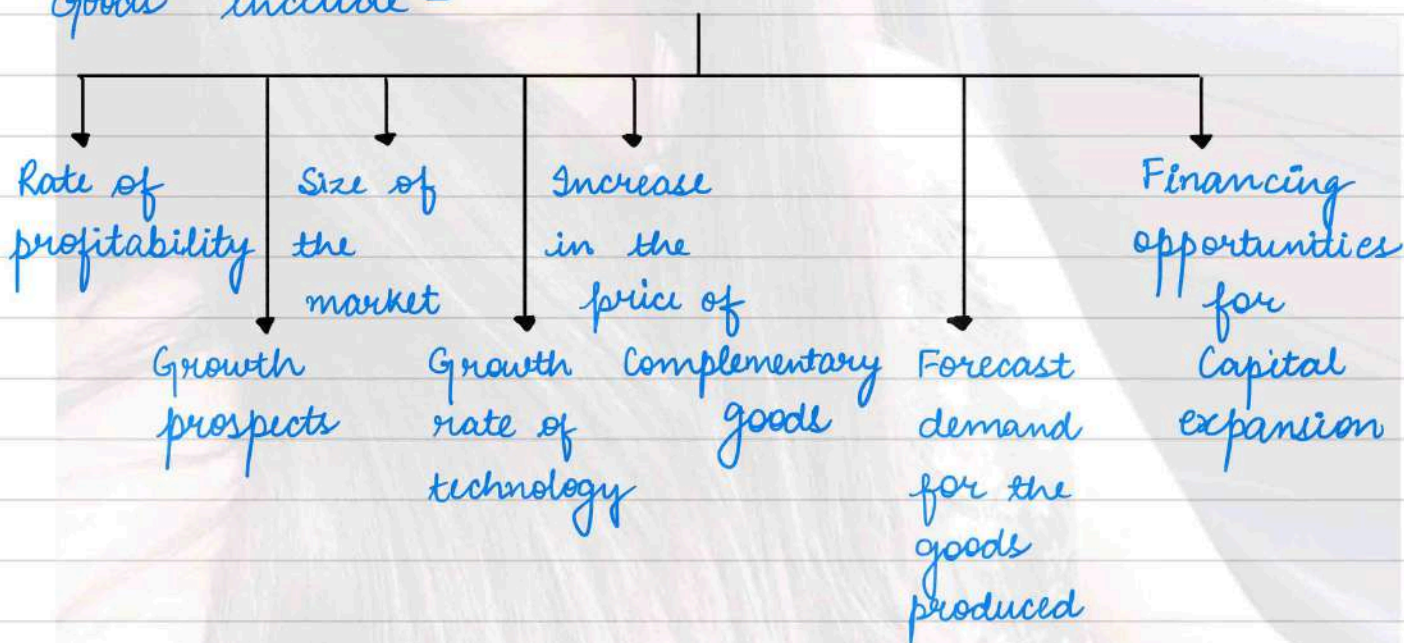 Goods include -
Rate of
profitability
Growth
prospects
Size of
the
market
Growth
rate of
technology
Increase
in the
price of
Complementary
goods
Forecast
demand
for the
goods
produced
Financing
opportunities
for
Capital
expansion